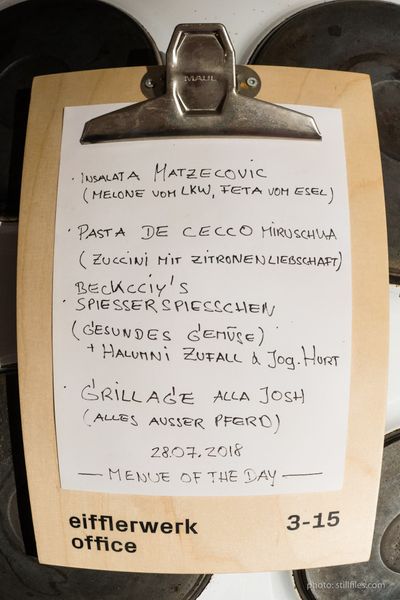 MAUL
· INSALATA MATZECOVIC
(MELONE VOM LKW, FETA VOM ESEL)
· PASTA DE CECCO MIRUSCHKA
(ZUCCINI MIT ZITRONENLIEBSCHAFT)
BECKCCIY'S
· SPIESSERSPIESSCHEN
(GESUNDES GEMÜSE)
+ HALUMNI ZUFALL & JOG.HURT
· GRILLAGE ALLA JOSH
(ALLES AUSSER PFERD)
28.07.2018
— MENUE OF THE DAY —
eifflerwerk 3-15
office
photo: stillfiles.com